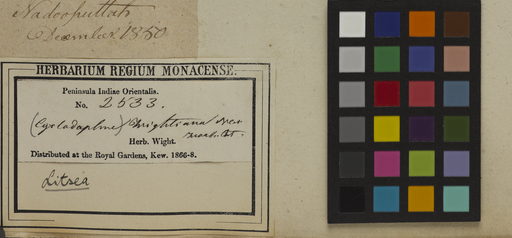 Nadooputtah
December 1850
HERBARIUM REGIUM MONACENSE.
Peninsula Indiae Orientalis.
No. 2533.
(Cycladaphne) Wightiana Nees
Herb. Wight.
Distributed at the Royal Gardens, Kew. 1866-8.
Litsea